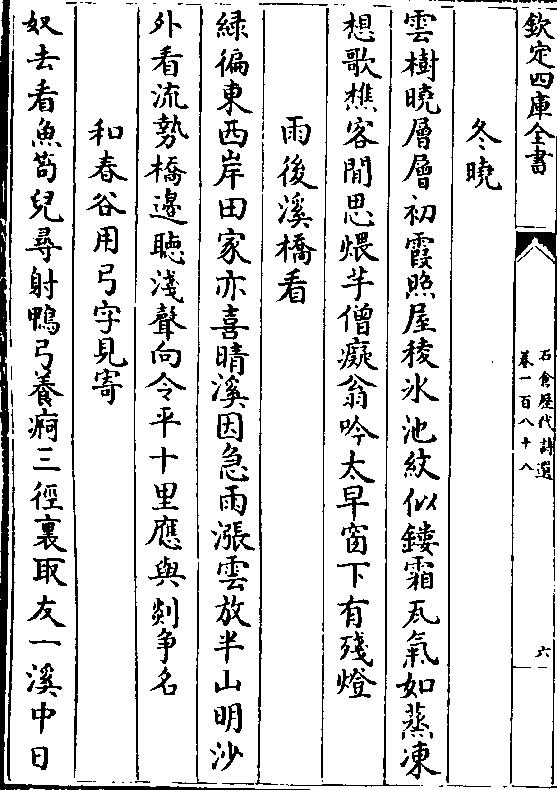 欽定四庫全書
石倉歷代詩選
卷一百八十八
六
冬曉
雲樹曉層層初霞照屋稜氷池紋似鏤霜瓦氣如蒸凍
想歌樵客閒思煨芋僧癡翁吟太早窗下有殘燈
雨後溪橋看
綠徧東西岸田家亦喜晴溪因急雨漲雲放半山明沙
外看流勢橋邊聴淺聲向令平十里應與剡争名
和春谷用弓字見寄
奴去看魚笱兒尋射鴨弓養痾三徑裏取友一溪中日